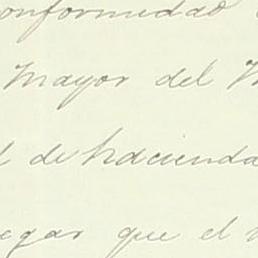 conformidad
Mayor del
de hacienda
que el